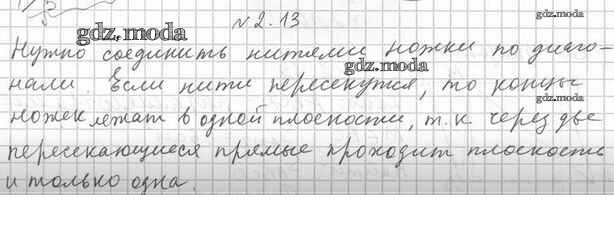 №2.13
gdz.moda
gdz.moda
Нужно соединить нитями ножки по диаго-
gdz.moda
нали. Если нити пересекутся, то концы
gdz.moda
ножек лежат в одной плоскости, т.к. через две
пересекающиеся прямые проходит плоскость
и только одна.